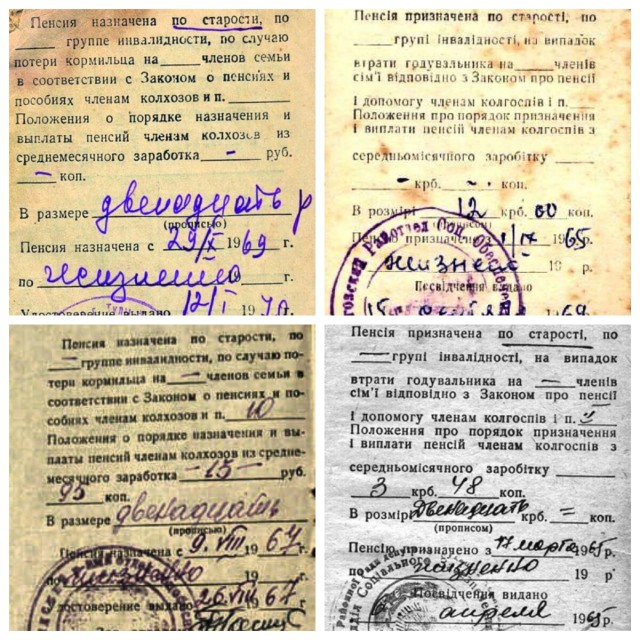 Пенсия назначена по старости, по
____ группе инвалидности, по случаю
потери кормильца на ____членов семьи
в соответствии с Законом о пенсиях и
пособиях членам колхозов и п. ____
Положения о порядке назначения и
выплаты пенсий членам колхозов из
среднемесячного заработка — руб.
— коп.
В размере двенадцать р
(прописью)
Пенсия назначена с 29/IX 1969 г.
по жизненно г.
Удостоверение выдано 12/I 1970г.
Пенсія призначена по старості, по
____групі інвалідності, на випадок
втрати годувальника на ____членів
сім'ї відповідно з Законом про пенсії
і допомогу членам колгоспів і п. ____
Положення про порядок призначення
і виплати пенсій членам колгоспів з
середньомісячного заробітку ____
- крб. - коп.
В розмірі 12 крб. 00 коп.
Пенсію призначено 1/IX 1965р.
жизнен 19 р.
Посвідчення видано
Пенсия назначена по старости, по
— группе инвалидности, по случаю по-
тери кормильца на — членов семьи в
соответствии с Законом о пенсиях и по-
собиях членам колхозов и п. 10
Положения о порядке назначения и вы-
платы пенсий членам колхозов из средне-
месячного заработка —15— руб.
95 коп.
В размере двенадцать
(прописью)
Пенсия назначена с 9.VIII 1967г.
по жизненно г.
Удостоверение выдано 20.VIII 67 г.
Пенсія призначена по старості, по
— групі інвалідності, на випадок
втрати годувальника на — членів
сім'ї відповідно з Законом про пенсії
і допомогу членам колгоспів і п.
Положення про порядок призначення
і виплати пенсій членам колгоспів з
середньомісячного заробітку ____
3 крб. 48 коп.
В розмірі Двенадцать крб. = коп.
(прописом)
Пенсію призначено з 17 марта 1965р.
по жизненно 19 р
Посвідчення видано
апреля 1965 р.